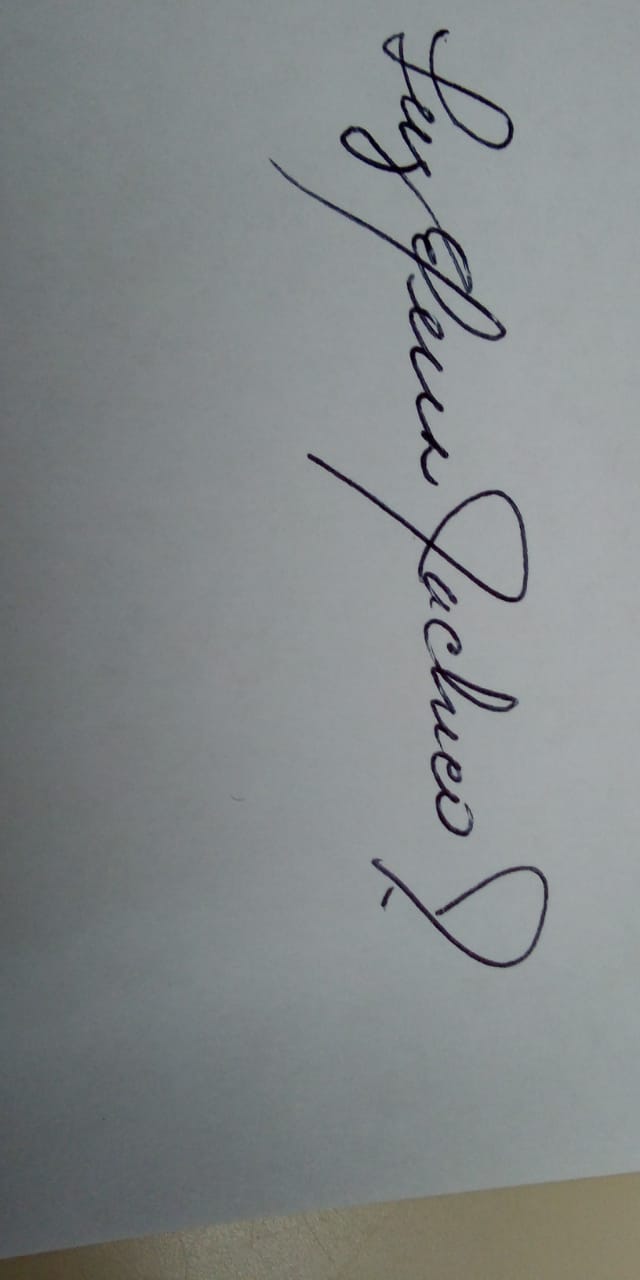 Luz Elena Pacheco P.